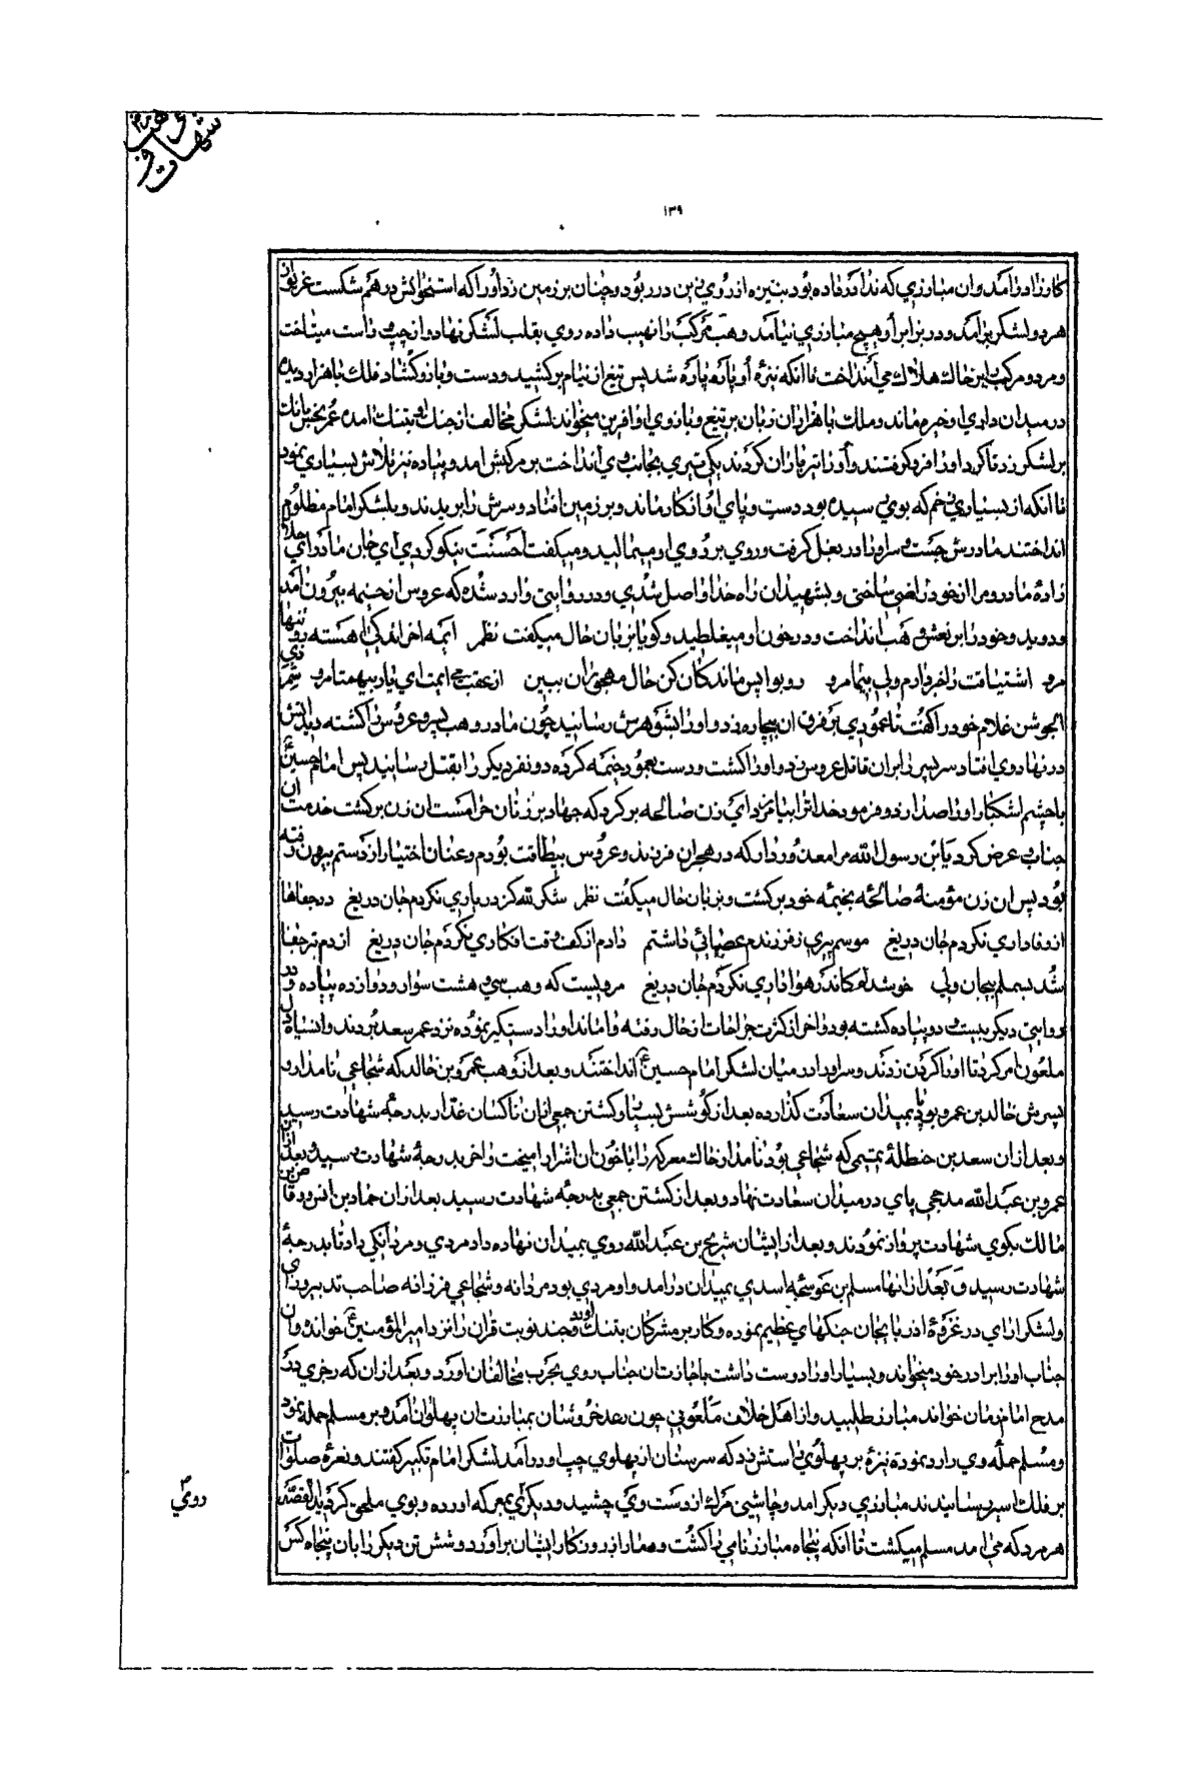 شهادت وهب
۱۳۹
کارزار درآمد وان مبارزی که نداء در داده بود بنیزه از روی زین در ربود و چنان بر زمین زد او را که استخوانش درهم شکست غریو از
هر دو لشکر برآمد و در برابر او هیچ مبارزی نیامد وهب مرکب را نهیب داده روی بقلب لشکر نهاد و از چپ و راست میتاخت
و مرد و مرکب بر خاک هلاک می انداخت تا آنکه نیزه او پاره پاره شد پس تیغ از نیام برکشید و دست و بازو گشاد فلک با هزار دیده
در میدان داری او خیره ماند و ملک با هزاران زبان بر تیغ و بازوی او آفرین میخواند لشکر مخالف از جنک او بتنک آمده عمر بخیل بانک
بر لشکر زد تا گرد او را فرو گرفتند و او را تیر باران کردند یکی تیری بجانب وی انداخت بر مرکبش آمد و پیاده نیز تلاش بسیاری نمود
تا آنکه از بسیاری زخم که بوی رسیده بود دست و پای او از کار ماند و بر زمین افتاد و سرش را بریدند و بلشکر امام مظلوم
انداختند مادرش جست و سر او را در بغل گرفت و روی بر روی او میمالید و میگفت احسنت نیکو کردی ای جان مادر ای حلال
زاده مادر مرا از خود راضی ساختی و بشهیدان راه خدا واصل شدی و در روایتی وارد شده که عروس از خیمه بیرون آمد
و دوید و خود را بر نعش وهب انداخت و در خون او میغلطید و گویا بزبان حال میگفت نظم ای مه آخر اندکی آهسته رو تنها
مرو اشتیاقت را خبر دارم ولی بیما مرو رو بواپس ماندکان کن حال مهجوران ببین از عقب می آیمت ای یار بیهمتا مرو شمر ذی
الجوشن غلام خود را گفت تا عمودی بر فرق آن بیچاره زد و او را بشوهرش رسانید چون مادر وهب پسر و عروس را کشته دید آتش
در نهاد وی افتاد سر پسر را بر آن قاتل عروس زد و او را کشت و دست بعمود خیمه کرده دو نفر دیگر را بقتل رسانید پس امام حسین ع
با چشم اشکبار او را صدا زد و فرمود خدا ترا بیامرزد ای زن صالحه برگرد که جهاد بر زنان حرامست آن زن برگشت خدمت آن
جناب عرض کرد یابن رسول الله مرا معذور دار که در هجران فرزند و عروس بیطاقت بودم و عنان اختیار از دستم بیرون رفته
بود پس آن زن مؤمنه صالحه بخیمه خود برگشت و بزبان حال میگفت نظم شکر لله کز در یاری نکردم جان دریغ در جفاها
از وفاداری نکردم جان دریغ موسم پیری ز فرزندم عصائی داشتم دادم از کف وقت افکاری نکردم جان دریغ از دم تیر جفا
شد بسملم بیجان ولی خوشدلم کاندر هواداری نکردم جان دریغ مرویست که وهب سی و هشت سوار و دوازده پیاده و در
روایتی دیگر بیست و دو پیاده کشته بود و آخر از کثرت جراحات از حال رفته وامانده او را دستگیر نموده نزد عمر سعد بردند و آن سیاه دل
ملعون امر کرد تا او را گردن زدند و سر او را در میان لشکر امام حسین ع انداختند و بعد از وهب عمرو بن خالد که شجاعی نامدار و
پسرش خالد بن عمرو بود پا بمیدان سعادت گذارده بعد از کوشش بسیار و کشتن جمعی از آن ناکسان غدار بدرجه شهادت رسید
و بعد از آن سعد بن حنظله تمیمی که شجاعی بود نامدار خاک معرکه را با خون آن اشرار آمیخت و آخر بدرجه شهادت رسید و بعد از آن
عمرو بن عبد الله مدحجی پای در میدان سعادت نهاد و بعد از کشتن جمعی بدرجه شهادت رسید بعد از آن حماد بن انس و وقاص بن
مالک بکوی شهادت پرواز نمودند و بعد از ایشان شریح بن عبد الله روی بمیدان نهاده داد مردی و مردانگی داد تا بدرجه
شهادت رسید و بعد از آنها مسلم بن عوسجه اسدی بمیدان درآمد و او مردی بود مردانه و شجاعی فرزانه صاحب تدبیر و رای
و لشکر ارای در غزوه آذربایجان جنکهای عظیم نموده و کار بر مشرکان بتنک آورده و چند نوبت قرآن را نزد امیر المؤمنین ع خوانده و آن
جناب او را برادر خود میخواند و بسیار او را دوست داشت با جازت آن جناب روی بحرب مخالفان آورد و بعد از آن که رجزی در
مدح امام زمان خواند مبارز طلبید و از اهل خلاف ملعونی چون رعد خروشان بمبارزت آن پهلوان آمد و بر مسلم حمله نمود
و مسلم حمله وی را رد نموده نیزه بر پهلوی راستش زد که سر سنان از پهلوی چپ او درآمد لشکر امام تکبیر گفتند و نعره صلوات
بر فلک اسیر رسانیدند مبارزی دیگر آمد و چاشنی مرک از دست وی چشید و دیگری بمعرکه آورده و بوی ملحق گردید القصه
هر مرد که می آمد مسلم میکشت تا آنکه پنجاه مبارز نامی را کشت و دمار از روزکار ایشان برآورد و شش تن دیگر را بان پنجاه کس
روی